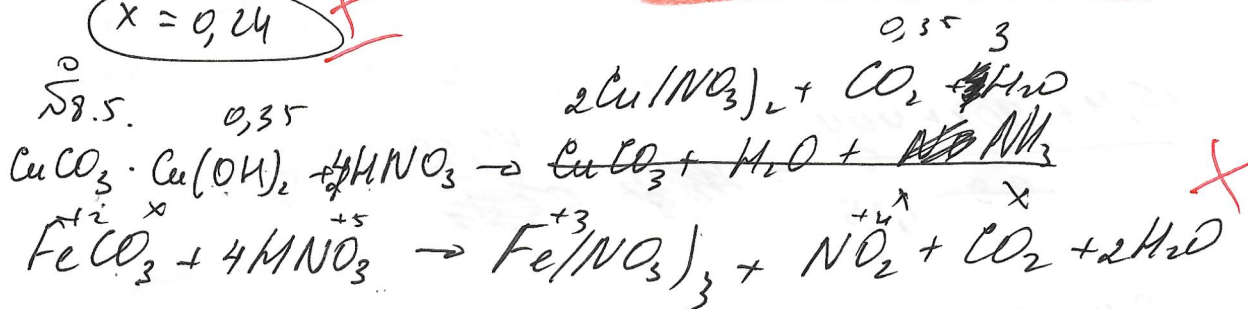 x = 0,24
№8.5.
0,35
0,35 3
2Cu(NO₃)₂ + CO₂ + H₂O
CuCO₃ · Cu(OH)₂ + 4HNO₃ → CuCO₃ + H₂O + NH₃
+2 x +5 +3 +4 x x
FeCO₃ + 4HNO₃ → Fe(NO₃)₃ + NO₂ + CO₂ + 2H₂O